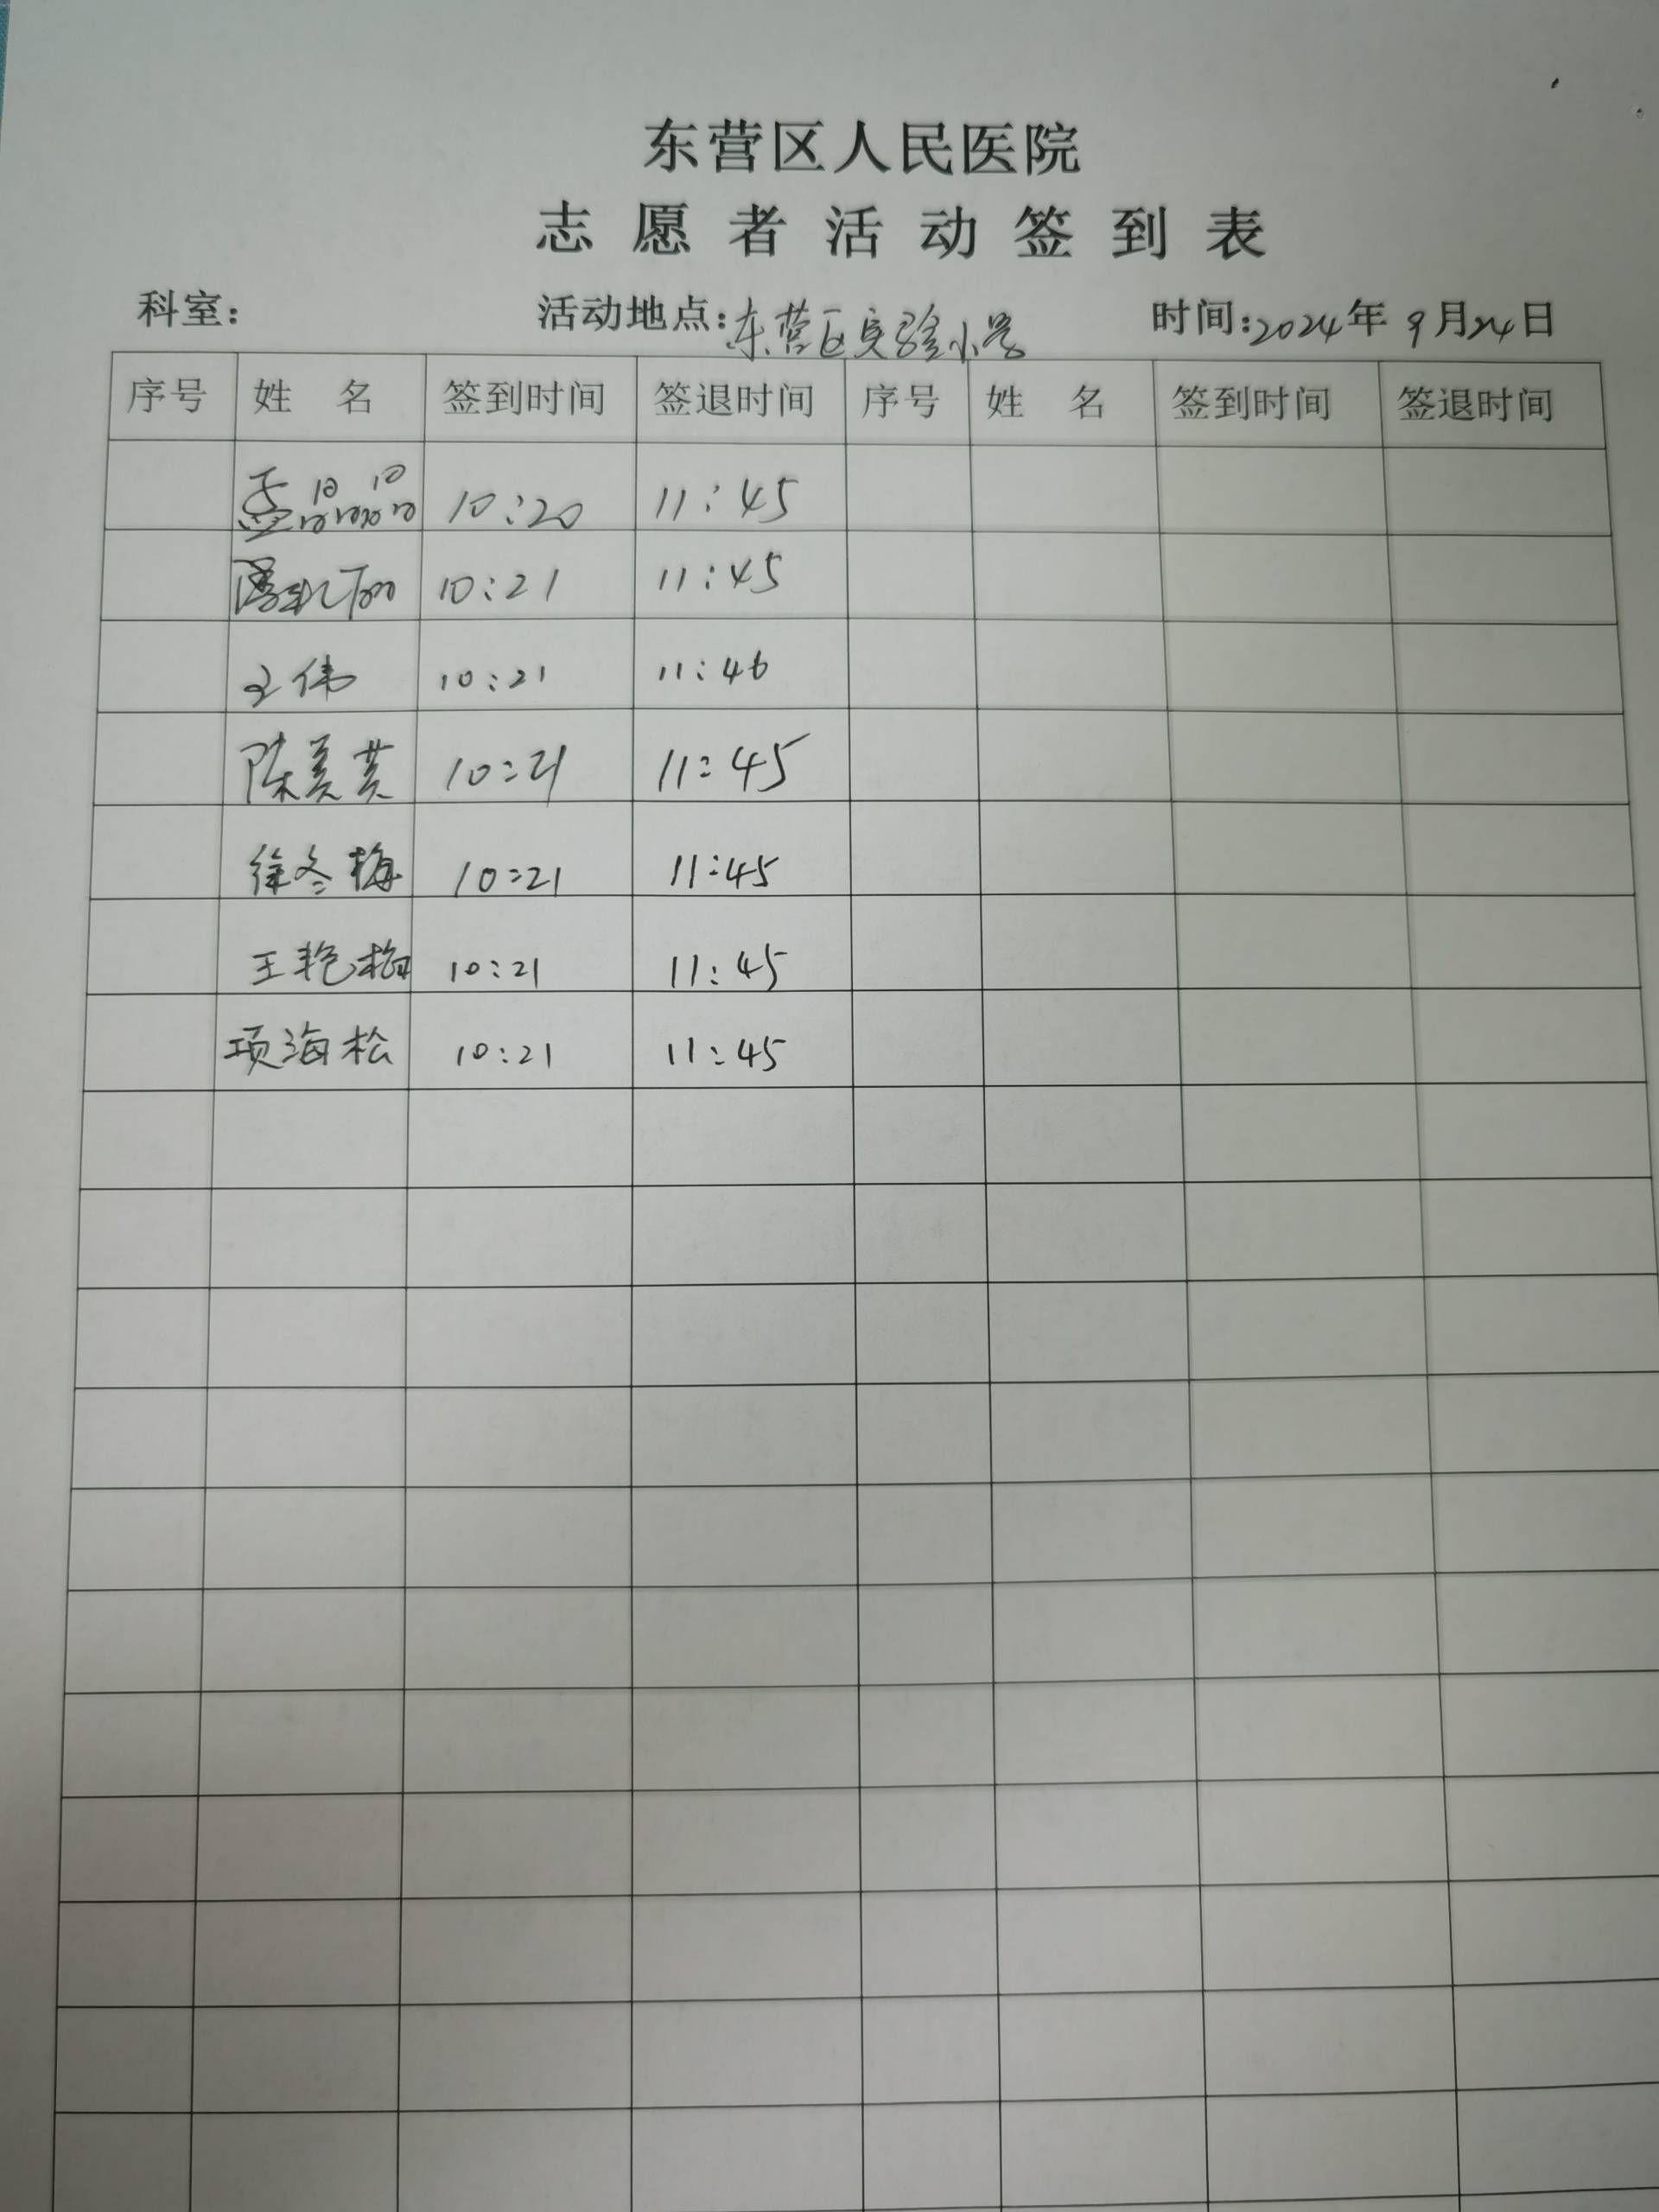 东营区人民医院
志愿者活动签到表
科室： 活动地点：东营区实验小学 时间：2024年9月24日
序号 姓名 签到时间 签退时间 序号 姓名 签到时间 签退时间
孟晶晶 10:20 11:45
10:21 11:45
王伟 10:21 11:46
陈美英 10:21 11:45
徐冬梅 10:21 11:45
王艳梅 10:21 11:45
项海松 10:21 11:45